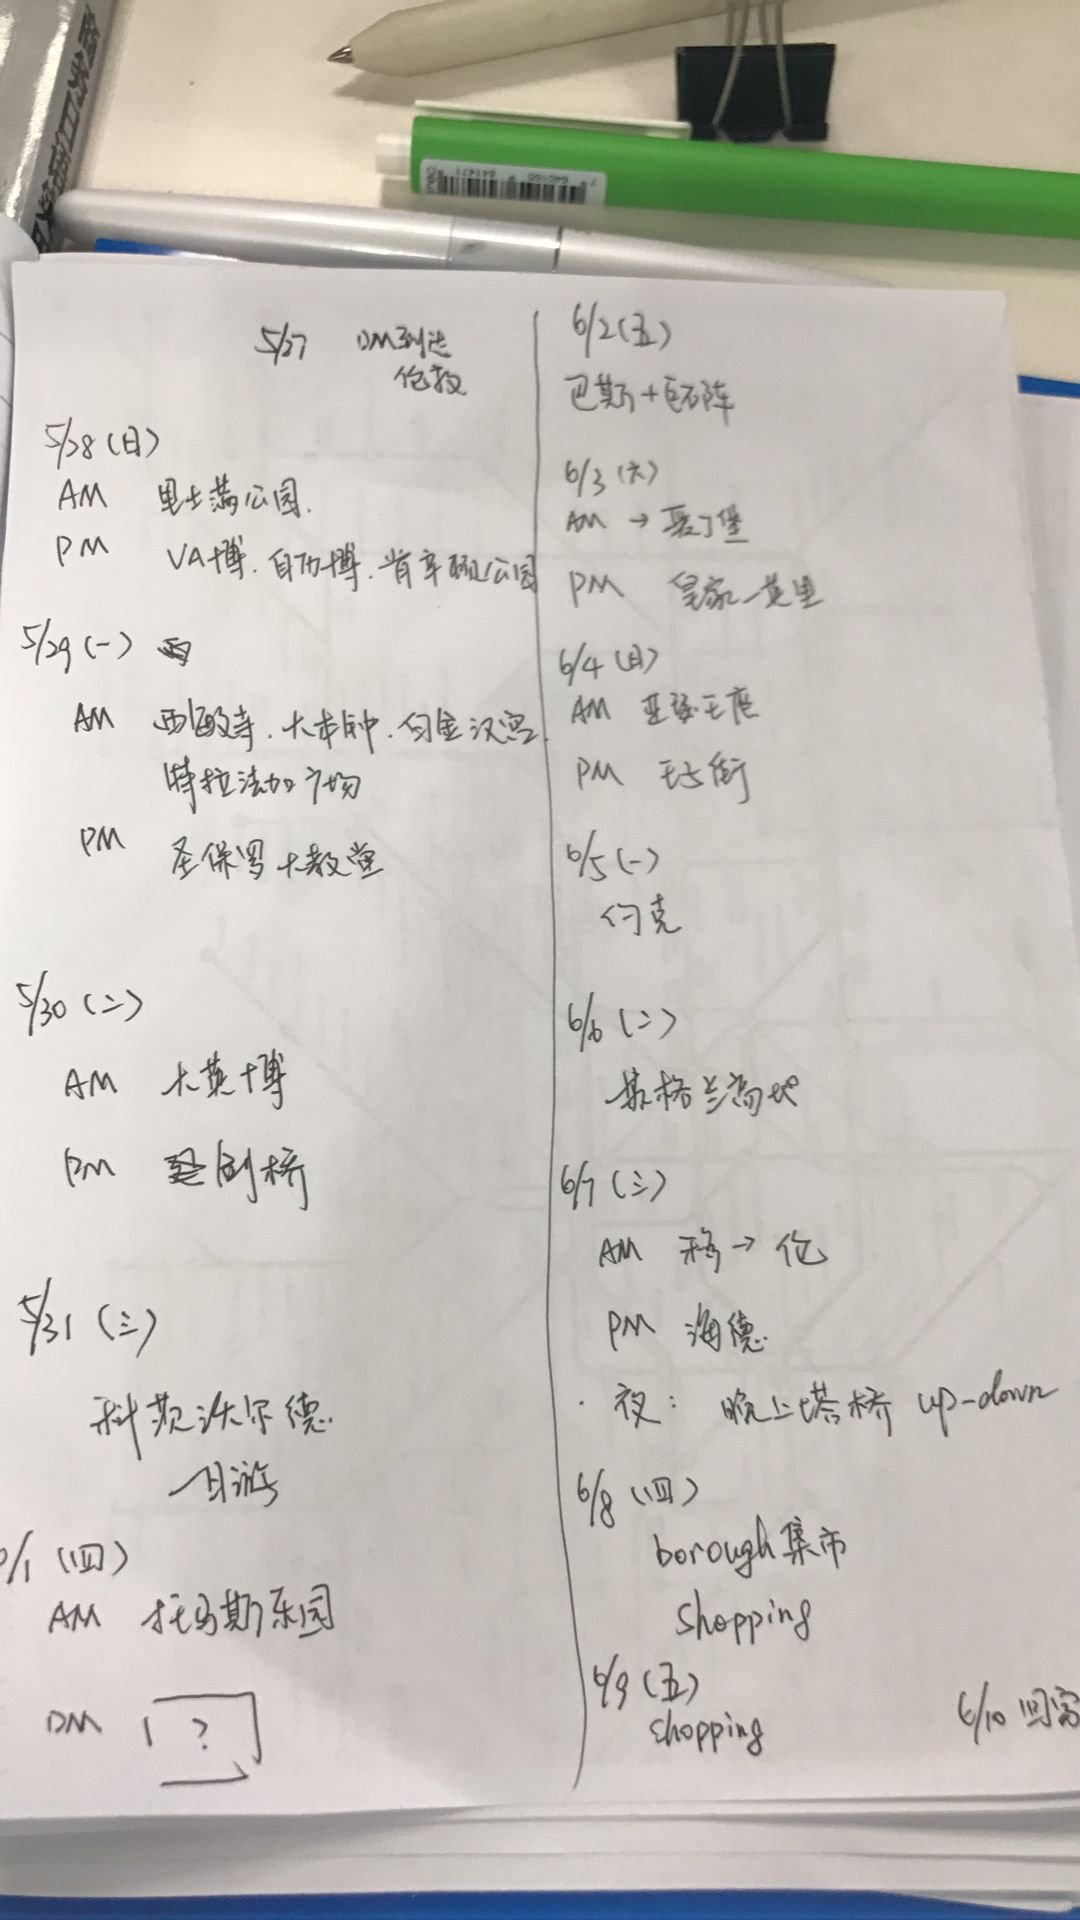 5/27 PM到达
伦敦
5/28(日)
AM 里士满公园.
PM VA博.自历博.肯辛顿公园
5/29(一)
AM 西敏寺.大本钟.白金汉宫.
特拉法加广场
PM 圣保罗大教堂
5/30(二)
AM 大英博
PM 剑桥
5/31(三)
科茨沃尔德
一日游
6/1(四)
AM 托马斯乐园
PM ?
6/2(五)
巴斯+巨石阵
6/3(六)
AM → 爱丁堡
PM 皇家一英里
6/4(日)
AM 亚瑟王座
PM 王子街
6/5(一)
约克
6/6(二)
苏格兰高地
6/7(三)
AM 移→伦
PM 海德
·夜: 晚上塔桥 up-down
6/8(四)
borough集市
shopping
6/9(五)
shopping
6/10 回家